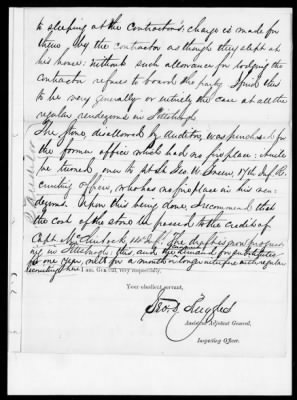 to sleeping at the Contractor's; charge is made for
them by the contractor as though they slept at
his house; without such allowance for lodging the
contractor refuses to board the party. I find this
to be very generally or entirely the case at all the
regular rendezvous in Pittsburgh.
The stove, disallowed by Auditor, was purchased for
the former office which had no fireplace; should
be turned over to Lt. Geo. W. 17th Inf. Re-
cruiting Officer, who has no fireplace in his ren-
dezvous. Upon this being done, I recommend that
the cost of the stove be passed to the credit of
Capt. 14th Inf. The draft is now progress-
ing in Pittsburgh; this, and the demand for substitutes
for one year, will for a month or longer interfere with regular
recruiting here. I am, General, very respectfully,
Your obedient servant,
Geo. S. Hughes
Assistant Adjutant General,
Inspecting Officer.